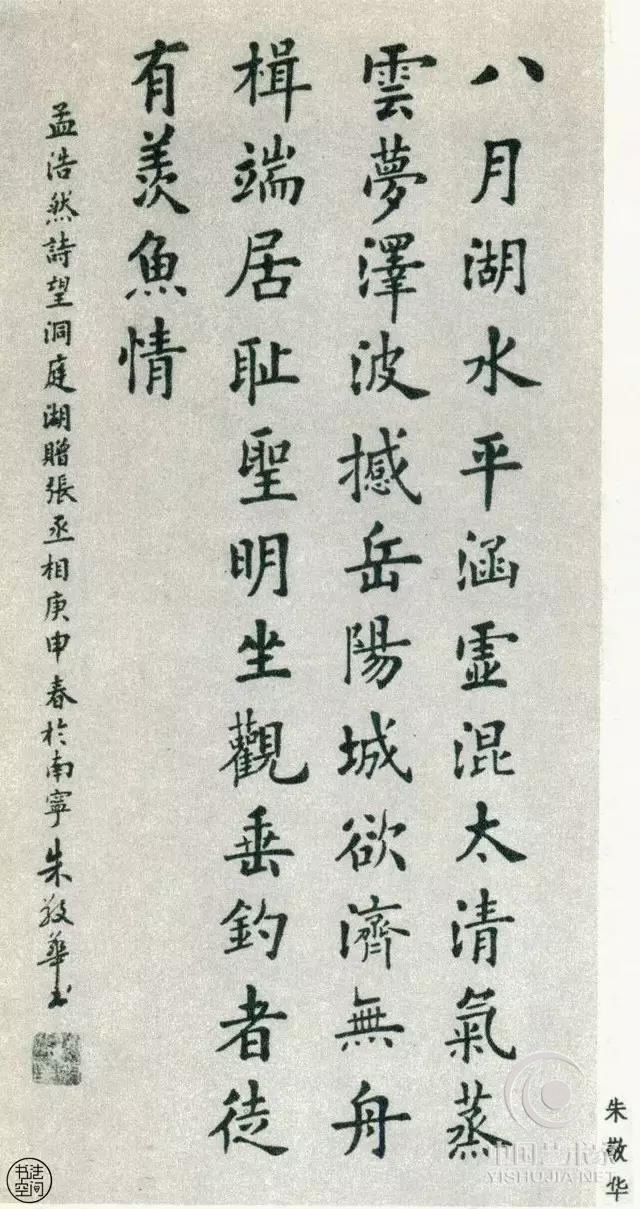 八月湖水平涵虛混太清氣蒸
雲夢澤波撼岳陽城欲濟無舟
楫端居恥聖明坐觀垂釣者徒
有羨魚情
孟浩然詩望洞庭湖贈張丞相庚申春於南寧朱敬華書
朱敬华
中国艺术家
YISHUJIA.NET
书法
空间